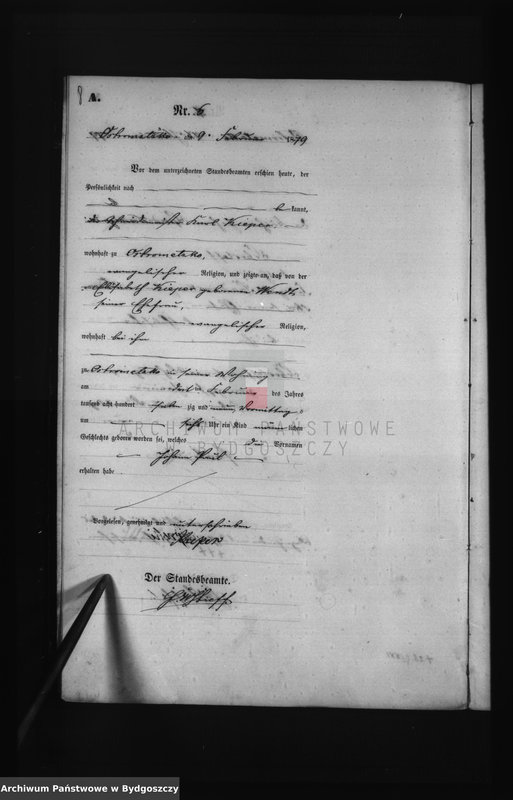 8 A.
Nr. 6
Ostrometzko, den 9. Februar 1879
Vor dem unterzeichneten Standesbeamten erschien heute, der
Persönlichkeit nach
be kannt,
der Schmiedemeister Karl Kieper,
wohnhaft zu Ostrometzko,
evangelischer Religion, und zeigte an, daß von der
Elisabeth Kieper geborenen Wendt
seiner Ehefrau,
evangelischer Religion,
wohnhaft bei ihm
zu Ostrometzko in seiner Wohnung
am Februar des Jahres
tausend acht hundert zig und neun, Vormittags
um Uhr ein Kind männ lichen
Geschlechts geboren worden sei, welches die Vornamen
Johann Paul
erhalten habe
Vorgelesen, genehmigt und unterschrieben
Kieper
Der Standesbeamte.
ARCHIWUM PAŃSTWOWE
W BYDGOSZCZY
Archiwum Państwowe w Bydgoszczy